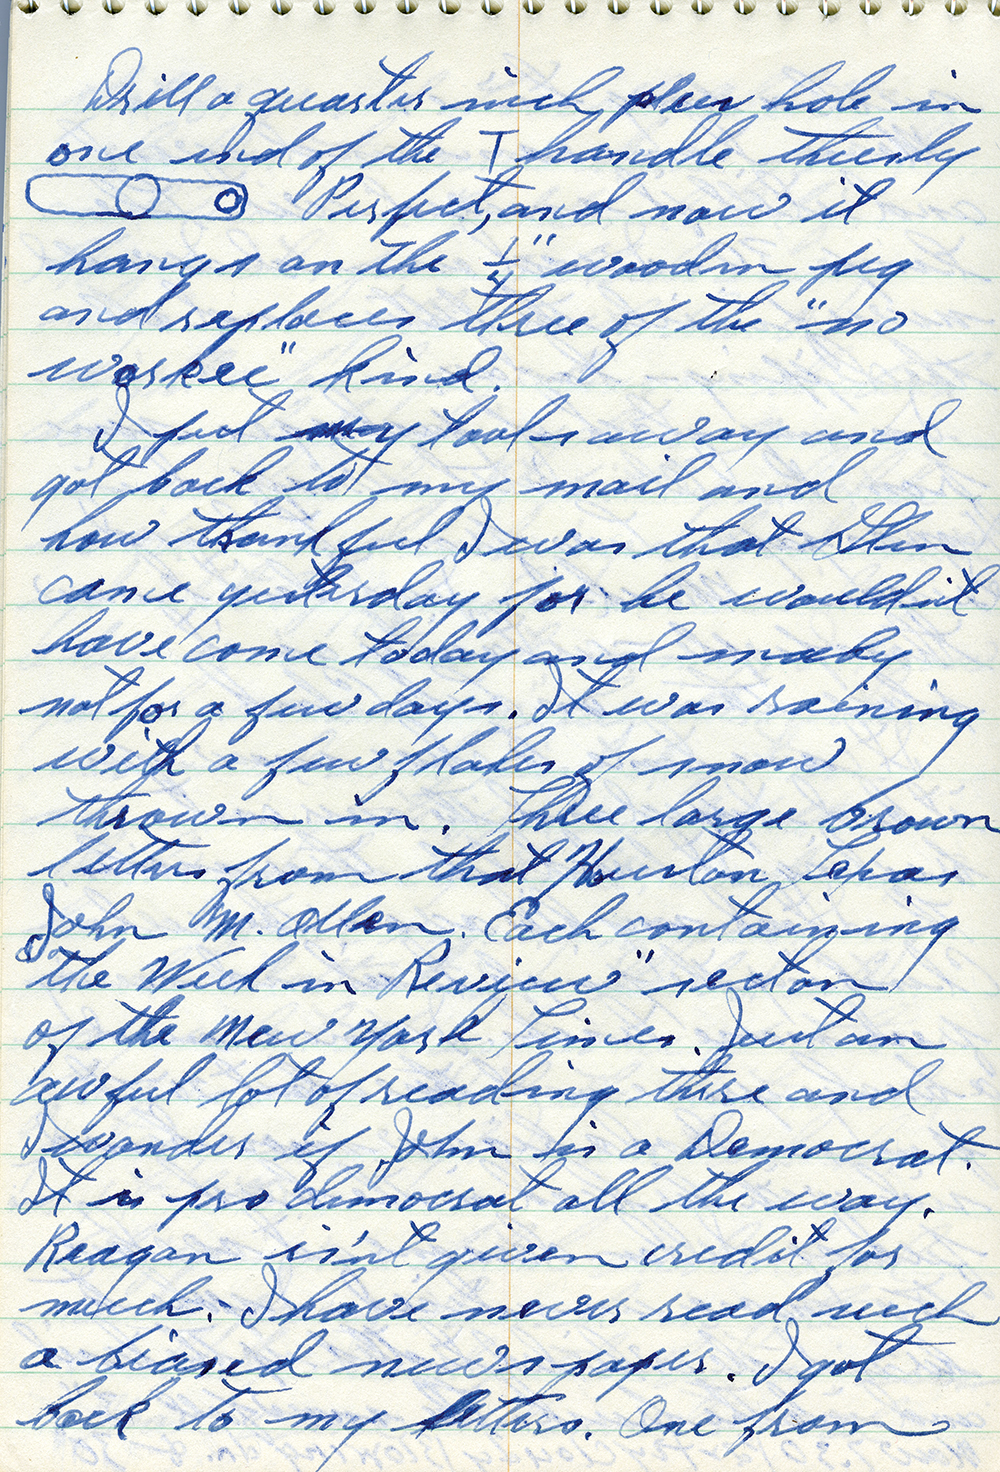 Drill a quarter inch hole in
one end of the T handle thusly
Perfect, and now it
hangs on the 1/4" wooden peg
and replaces three of the "no
workee" kind.
I put my tools away and
got back to my mail and
how thankful I was that Glen
came yesterday for he wouldn't
have come today and maby
not for a few days. It was raining
with a few flakes of snow
thrown in. Three large brown
letters from that Houston Texas
John M. Allen. Each containing
"the Week in Review" section
of the New York Times. Just an
awful lot of reading there and
I wonder if John is a Democrat.
It is pro democrat all the way.
Reagan is'nt given credit for
much. I have never read such
a biased news paper. I got
back to my letters. One from